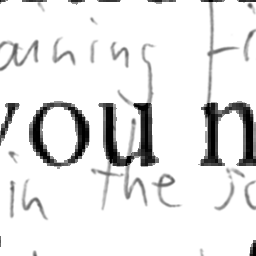 aining Fi
you n
in the so